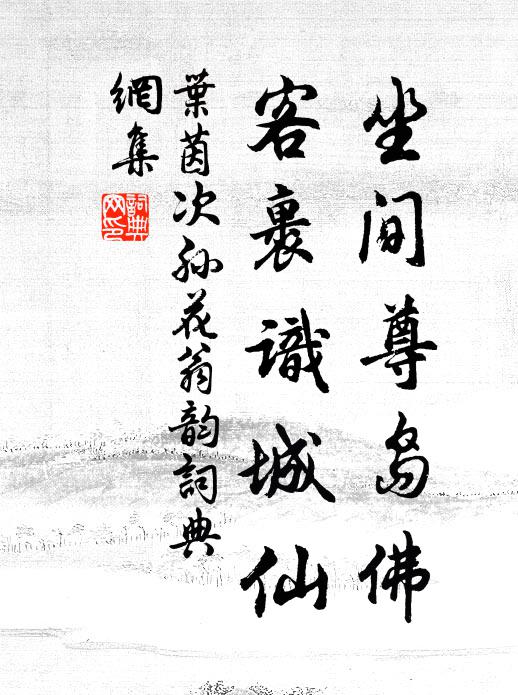 坐間尊島佛
客裏識城仙
葉茵次孙花翁韵詞典
網集
詞典
网印